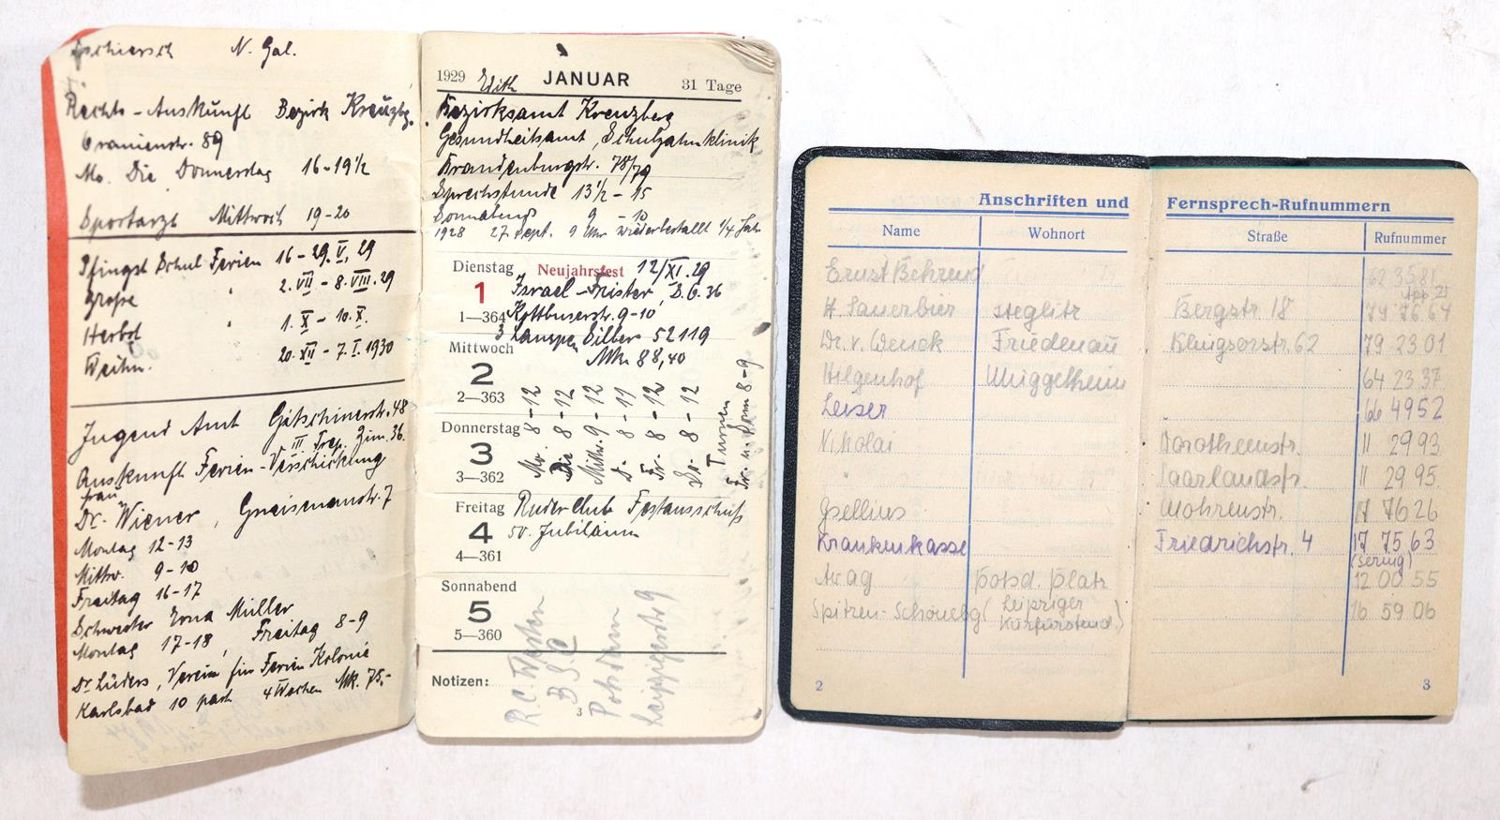 N. Gal.
Rechts-Auskunft Bezirk Kreuzbg.
Oranienstr. 89
Mo. Die Donnerstag 16-19½
Sportarzt Mittwoch 19-20
Pfingst Schul Ferien 16-29. V. 29
Große " 2. VII - 8. VIII. 29
Herbst " 1. X - 10. X.
Weihn. 20. XII - 7. I. 1930
Jugend Amt Gitschinerstr. 48
III Trep. Zim. 36.
Auskunft Ferien-Verschickung
Frau
Dr. Wiener, Gneisenaustr. 7
Montag 12-13
Mittw. 9-10
Freitag 16-17
Schwester Erna Müller
Montag 17-18, Freitag 8-9
Dr Lüders, Verein für Ferien Kolonie
Karlsbad 10 part 4 Wochen Mk. 75,-
1929 Edith JANUAR 31 Tage
Bezirksamt Kreuzberg
Gesundheitsamt, Schulzahnklinik
Brandenburgstr. 78/79
Sprechstunde 13½ - 15
Sonnabend 9 - 10
1928 27 Sept. 9 Uhr wiederbestellt ¼ Jah
Dienstag Neujahrsfest 12/XI. 29
1 Israel-Frister, D. 6. 36
1—364 Kottbuserstr. 9-10
3 Lampen Silber 52119
Mittwoch Mk. 88,40
2
2—363
Mo. 8-12
Die 8-12
Mittw. 9-12
D. 8-11
Fr. 8-12
So. 8-12
Turnen
8-9
Donnerstag
3
3—362
Freitag Ruder Club Festausschuß
4 50. Jubiläum
4—361
Sonnabend
5
5—360
Notizen:
R. C.
B. S. C
Potsdam
Leipzigerstr 9
3
Anschriften und Fernsprech-Rufnummern
Name Wohnort Straße Rufnummer
Ernst Behrend 62 3581
H. Sauerbier Steglitz Bergstr 18 79 76 64
Dr. v. Wenck Friedenau Klingsorstr. 62 79 23 01
Hilgenhof Müggelheim 64 23 37
Leiser 66 4952
Nikolai Dorotheenstr. 11 2993
" Saarlandstr. 11 29 95
Gsellius Mohrenstr. 17 7626
Krankenkasse Friedrichstr. 4 17 75 63
Awag Potsd. Platz 12 00 55
Spitzen-Schönebg (Leipziger 16 59 06
Kurfürstend.)
2 3